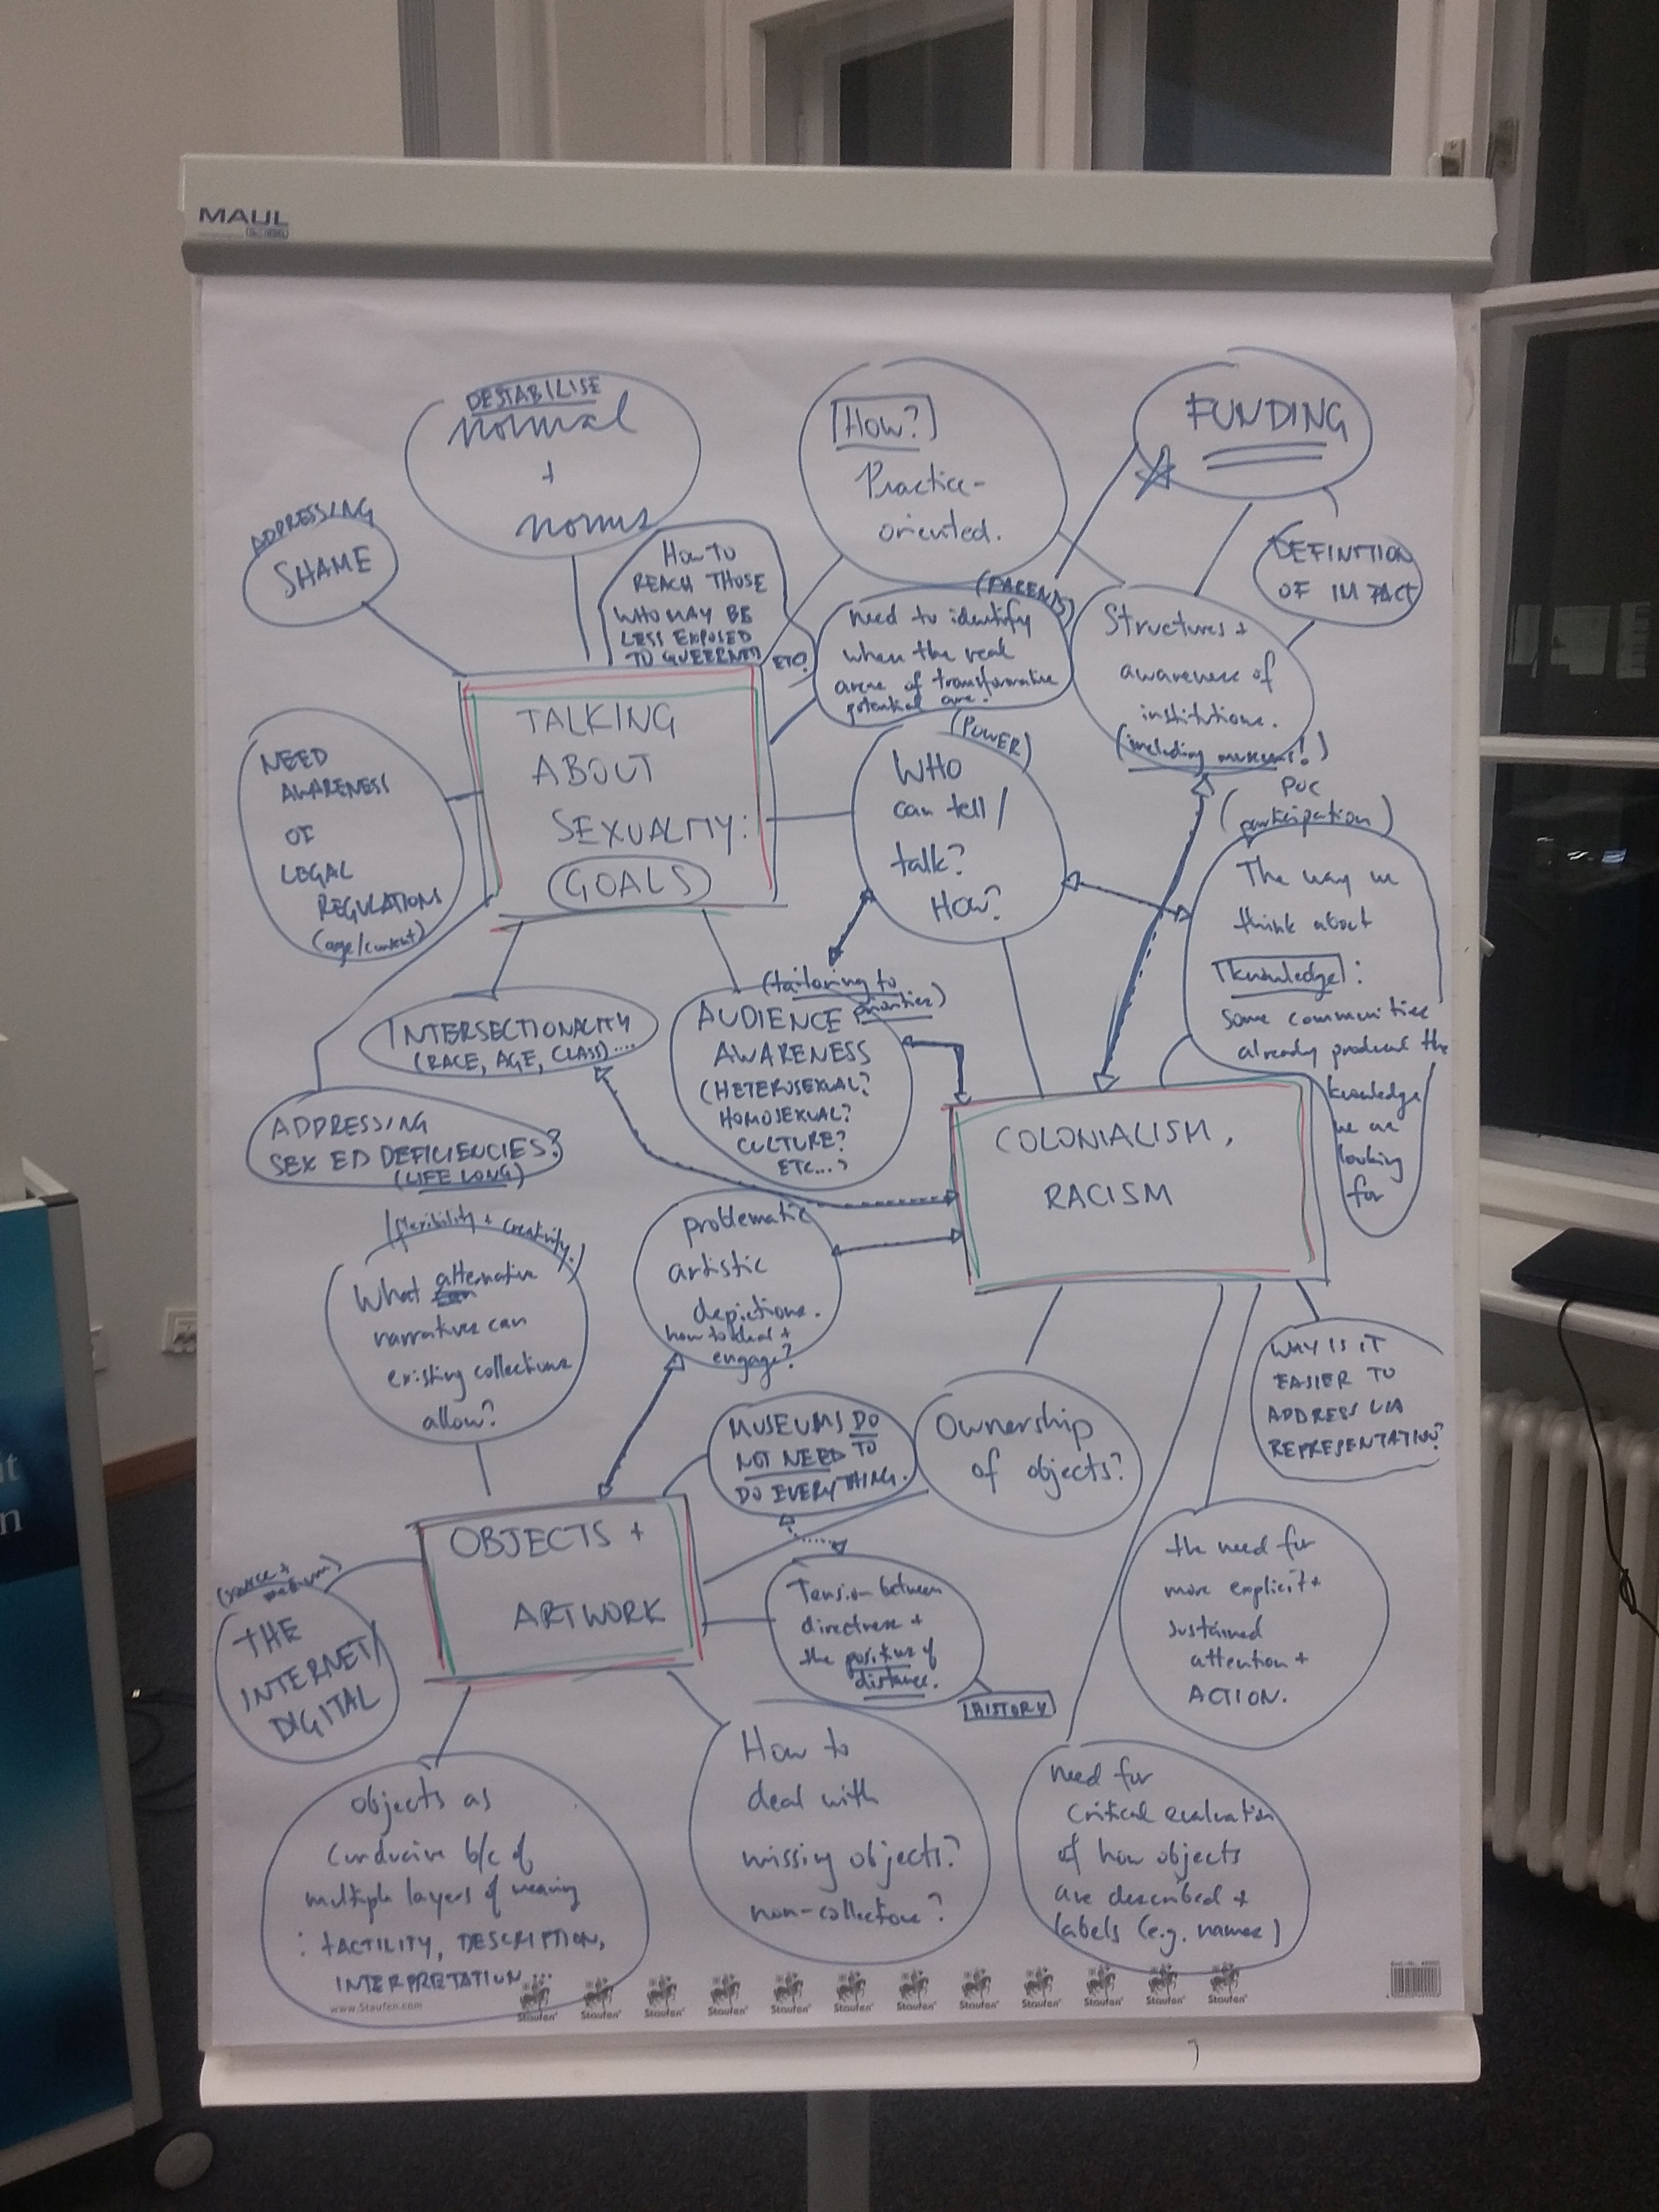 MAUL
DESTABILISE
normal
+
norms
[How?]
Practice-
oriented.
FUNDING
ADDRESSING
SHAME
DEFINITION
OF IMPACT
How to
REACH THOSE
WHO MAY BE
LESS EXPOSED
TO QUEERNESS
ETC?
(PARENTS)
need to identify
when the real
areas of transformative
potential are.
Structures +
awareness of
institutions.
(including museums!)
TALKING
ABOUT
SEXUALITY:
GOALS
NEED
AWARENESS
OF
LEGAL
REGULATIONS
(age/content)
(POWER)
WHO
can tell/
talk?
How?
POC
(participation)
The way we
think about
[knowledge]:
some communities
already produced the
knowledge
we are
looking
for
INTERSECTIONALITY
(RACE, AGE, CLASS)....
(tailoring to
priorities)
AUDIENCE
AWARENESS
(HETEROSEXUAL?
HOMOSEXUAL?
CULTURE?
ETC...)
ADDRESSING
SEX ED DEFICIENCIES?
(LIFE LONG)
COLONIALISM,
RACISM
(flexibility + creativity)
What alternative
narratives can
existing collections
allow?
problematic
artistic
depictions.
how to deal +
engage?
WHY IS IT
EASIER TO
ADDRESS VIA
REPRESENTATION?
MUSEUMS DO
NOT NEED TO
DO EVERYTHING.
Ownership
of objects?
OBJECTS +
ARTWORK
(source +
medium)
THE
INTERNET/
DIGITAL
Tension between
directness +
the positives of
distance.
[HISTORY]
the need for
more explicit +
sustained
attention +
ACTION.
Objects as
conducive b/c of
multiple layers of meaning
: tACTILITY, DESCRIPTION,
INTERPRETATION...
How to
deal with
missing objects?
non-collections?
need for
critical evaluation
of how objects
are described +
labels (e.g. names)
www.Staufen.com
Staufen Staufen Staufen Staufen Staufen Staufen Staufen Staufen Staufen Staufen Staufen Staufen